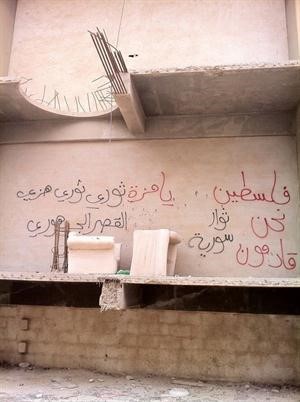 فلسطين
نحن ثوار
سورية
قادمون
يا مزة ثوري ثوري هزي
القصر الجمهوري